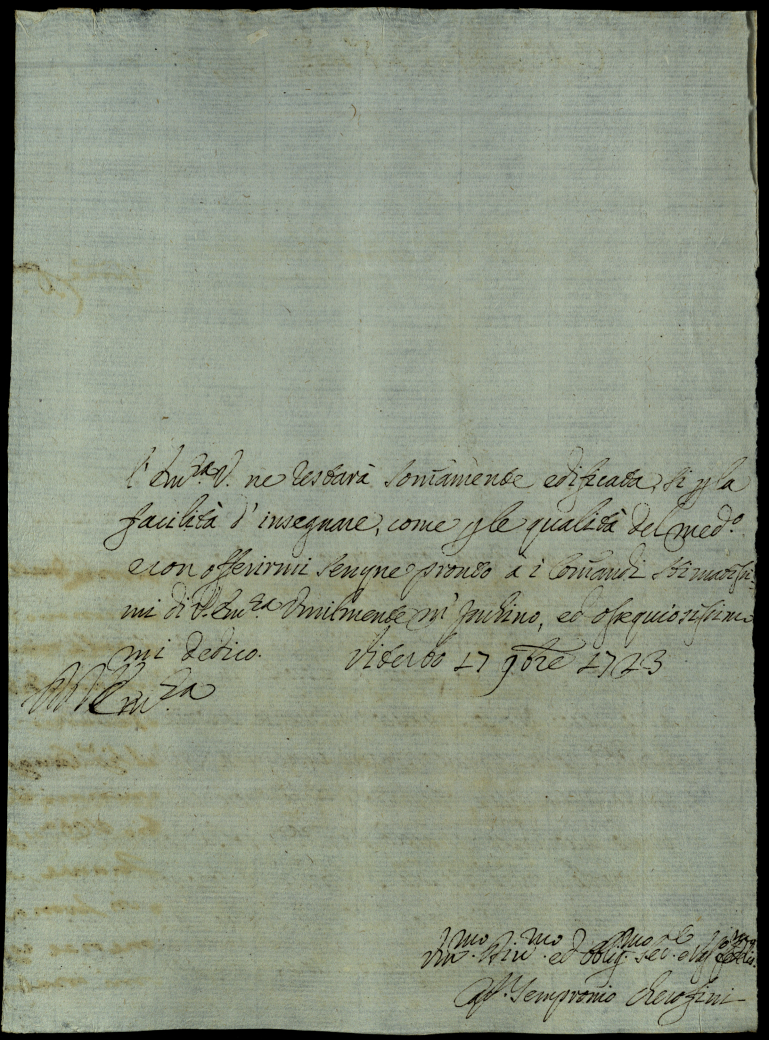 l' Em.za V. ne restarà som̃amente edificata, si p la
facilità d' insegnare, come p le qualità del med.o
e con offerirmi sempre pronto a i Com̃andi stimatissi-
mi di V. Em.za Umilmente m' inchino, ed ossequiosissima
mi dedico. Viterbo 17 9bre 1723
Em.za
Um.mo Div.mo ed Oblig.mo
Sempronio Cherofini